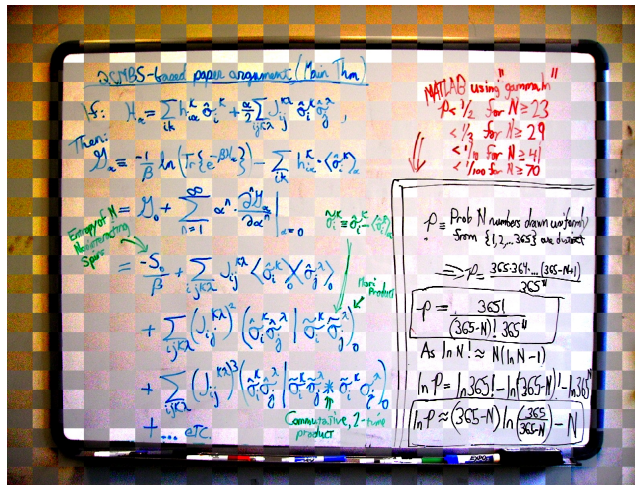 2CNBS-based paper argument (Main Thm)
If: ℋ_α = ∑_{ik} h_{iα}^κ σ̂_i^κ + α/2 ∑_{ijκλ} J_{ij}^{κλ} σ̂_i^κ σ̂_j^λ ,
Then:
𝒢_α ≡ -1/β ln(Tr{e^{-βℋ_α}}) - ∑_{ik} h_{iα}^κ · ⟨σ̂_i^κ⟩_α
= 𝒢_0 + ∑_{n=1}^∞ α^n · ∂^n𝒢_α/∂α^n |_{α=0}
Entropy of N
Noninteracting
Spins
σ̃_i^κ ≡ σ̂_i^κ - ⟨σ̂_i^κ⟩_0
= -S_0/β + ∑_{ijκλ} J_{ij}^{κλ} ⟨σ̂_i^κ⟩_0 ⟨σ̂_j^λ⟩_0
Mori Product
+ ∑_{ijκλ} (J_{ij}^{κλ})^2 (σ̃_i^κ σ̃_j^λ | σ̃_i^κ σ̃_j^λ)_0
+ ∑_{ijκλ} (J_{ij}^{κλ})^3 (σ̃_i^κ σ̃_j^λ | σ̃_i^κ σ̃_j^λ * σ̃_i^κ σ̃_j^λ)_0
Commutative, 2-time
product
+ ... etc.
MATLAB using "gammaln"
P < 1/2 for N ≥ 23
< 1/3 for N ≥ 29
< 1/10 for N ≥ 41
< 1/100 for N ≥ 70
P ≡ Prob N numbers drawn uniformly
from {1,2,...365} are distinct
⇒ P = 365·364·...(365-N+1)/365^N
P = 365!/((365-N)! 365^N)
As ln N! ≈ N(ln N - 1)
ln P = ln 365! - ln(365-N)! - ln 365^N
ln P ≈ (365-N) ln(365/(365-N)) - N
EXPO